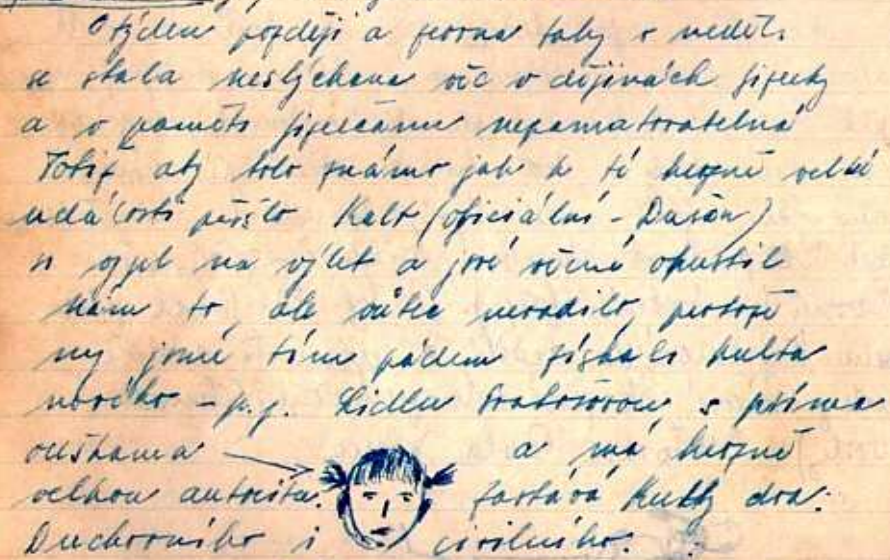 O týden později a zrovna taky v neděli
se stala neslýchaná věc v dějinách
a v paměti nepamatovatelná
Totiž aby bylo známo jak k té hrozně velké
události přišlo Kult (oficiální - Dušan)
si vyjel na výlet a jové věčné opustil
nám to, ale vůbec nevadilo, protože
my jsme tím pádem získali kulta
nového - p.z. Lidku s príma
culíkama a má hrozně
velkou autoritu. zastává Kulty dva:
Duchovního i civilního.